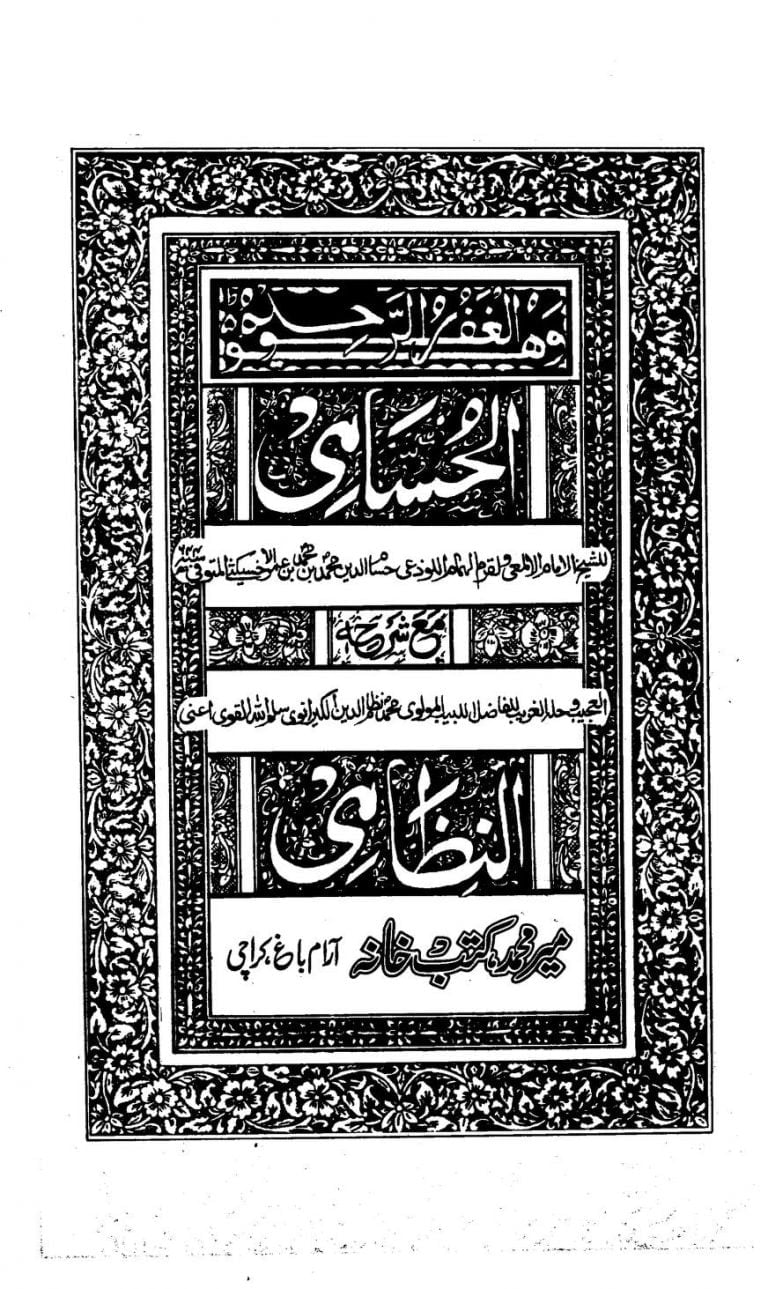 وَهُوَ الْغَفُورُ الرَّحِيمُ
الحُسَامِی
للشیخ الامام الالمعی والقرم الهمام اللوذعی حسام الدین محمد بن محمد بن عمر الاخسیکثی المتوفی سنه ۶۴۴
مَعَ شَرْحِه
العجیب وحله الغریب للفاضل اللبیب المولوی محمد نظام الدین الکیرانوی سلمه الله القوی اعنی
النِظَامِی
میر محمد، کتب خانہ آرام باغ، کراچی